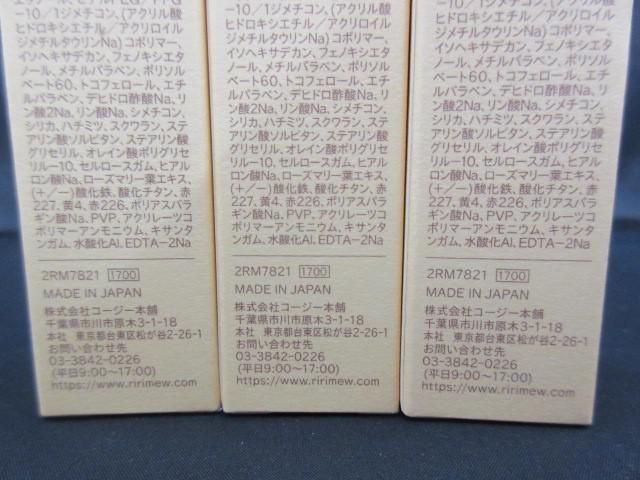 -10/1ジメチコン、(アクリル酸
ヒドロキシエチル/アクリロイル
ジメチルタウリンNa)コポリマー、
イソヘキサデカン、フェノキシエタ
ノール、メチルパラベン、ポリソル
ベート60、トコフェロール、エチ
ルパラベン、デヒドロ酢酸Na、リ
ン酸2Na、リン酸Na、シメチコン、
シリカ、ハチミツ、スクワラン、ステ
アリン酸ソルビタン、ステアリン酸
グリセリル、オレイン酸ポリグリセ
リル-10、セルロースガム、ヒアル
ロン酸Na、ローズマリー葉エキス、
(+/-)酸化鉄、酸化チタン、赤
227、黄4、赤226、ポリアスパラ
ギン酸Na、PVP、アクリレーツコ
ポリマーアンモニウム、キサンタ
ンガム、水酸化Al、EDTA-2Na
2RM7821 1700
MADE IN JAPAN
株式会社コージー本舗
千葉県市川市原木3-1-18
本社 東京都台東区松が谷2-26-1
お問い合わせ先
03-3842-0226
(平日9:00〜17:00)
https://www.ririmew.com
-10/1ジメチコン、(アクリル酸
ヒドロキシエチル/アクリロイル
ジメチルタウリンNa)コポリマー、
イソヘキサデカン、フェノキシエタ
ノール、メチルパラベン、ポリソル
ベート60、トコフェロール、エチ
ルパラベン、デヒドロ酢酸Na、リ
ン酸2Na、リン酸Na、シメチコン、
シリカ、ハチミツ、スクワラン、ステ
アリン酸ソルビタン、ステアリン酸
グリセリル、オレイン酸ポリグリセ
リル-10、セルロースガム、ヒアル
ロン酸Na、ローズマリー葉エキス、
(+/-)酸化鉄、酸化チタン、赤
227、黄4、赤226、ポリアスパラ
ギン酸Na、PVP、アクリレーツコ
ポリマーアンモニウム、キサンタ
ンガム、水酸化Al、EDTA-2Na
2RM7821 1700
MADE IN JAPAN
株式会社コージー本舗
千葉県市川市原木3-1-18
本社 東京都台東区松が谷2-26-1
お問い合わせ先
03-3842-0226
(平日9:00〜17:00)
https://www.ririmew.com
-10/1ジメチコン、(アクリル酸
ヒドロキシエチル/アクリロイル
ジメチルタウリンNa)コポリマー、
イソヘキサデカン、フェノキシエタ
ノール、メチルパラベン、ポリソル
ベート60、トコフェロール、エチ
ルパラベン、デヒドロ酢酸Na、リ
ン酸2Na、リン酸Na、シメチコン、
シリカ、ハチミツ、スクワラン、ステ
アリン酸ソルビタン、ステアリン酸
グリセリル、オレイン酸ポリグリセ
リル-10、セルロースガム、ヒアル
ロン酸Na、ローズマリー葉エキス、
(+/-)酸化鉄、酸化チタン、赤
227、黄4、赤226、ポリアスパラ
ギン酸Na、PVP、アクリレーツコ
ポリマーアンモニウム、キサンタ
ンガム、水酸化Al、EDTA-2Na
2RM7821 1700
MADE IN JAPAN
株式会社コージー本舗
千葉県市川市原木3-1-18
本社 東京都台東区松が谷2-26-1
お問い合わせ先
03-3842-0226
(平日9:00〜17:00)
https://www.ririmew.com